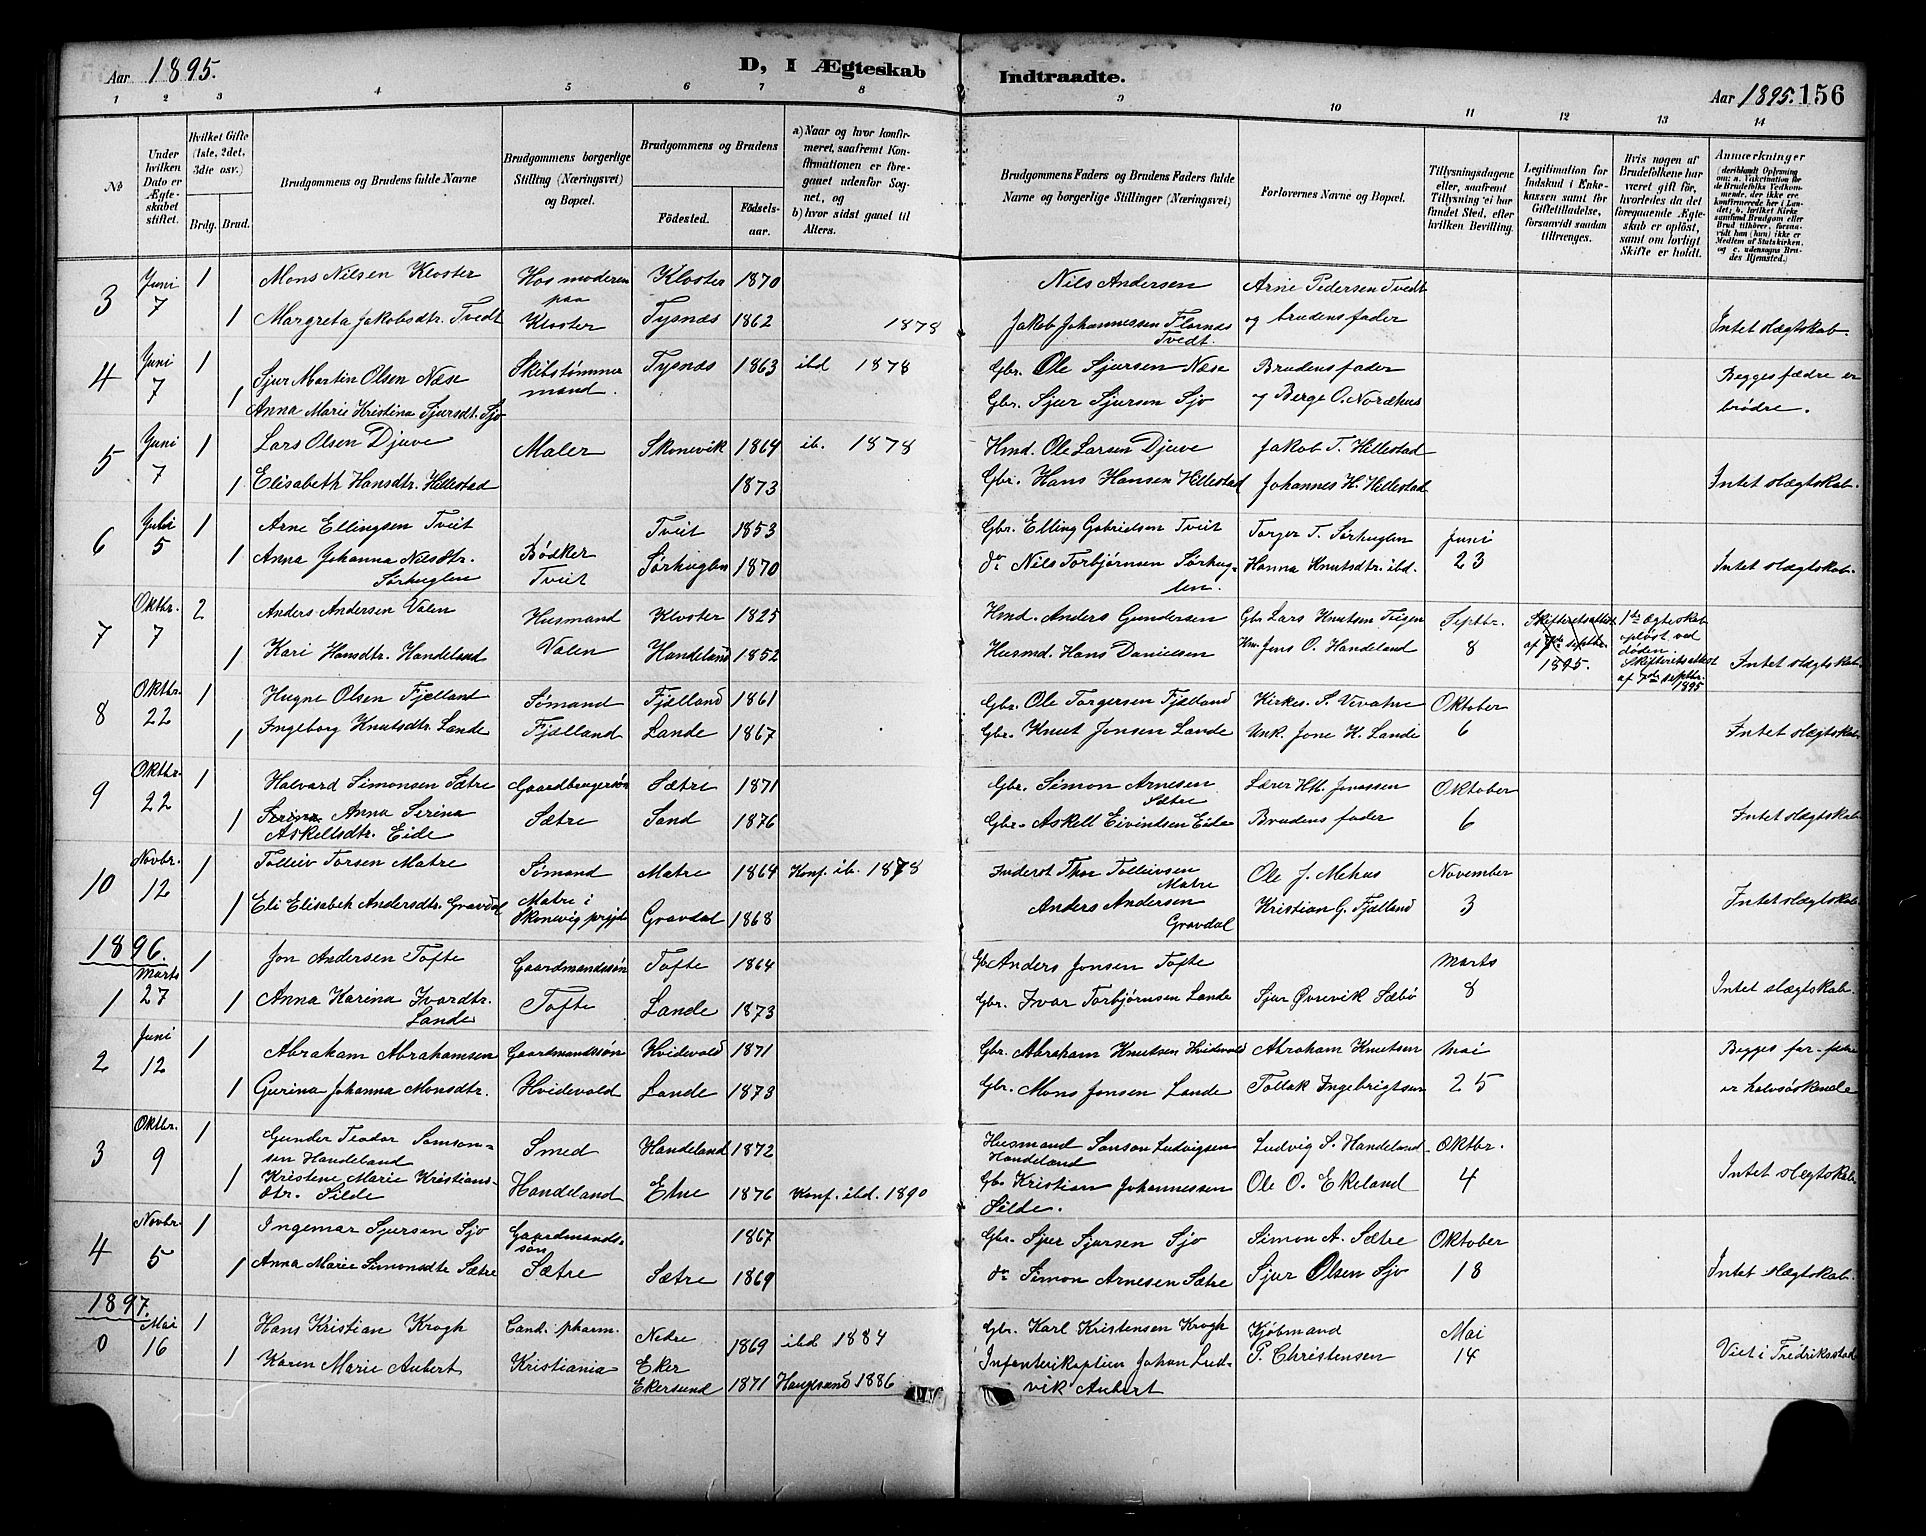 Aar 1895.
D, I Ægteskab
Indtraadte.
Aar 1895. 156
1 2 3 4 5 6 7 8 9 10 11 12 13 14
No
Under hvilken Dato er Ægteskabet stiftet.
Hvilket Gifte (1ste, 2det, 3die osv.)
Brdg. Brud.
Brudgommens og Brudens fulde Navne
Brudgommens borgerlige Stilling (Næringsvei) og Bopæl.
Brudgommens og Brudens
Födested.
Födselsaar.
a) Naar og hvor konfirmeret, saafremt Konfirmationen er foregaaet udenfor Sognet, og
b) hvor sidst gaaet til Alters.
Brudgommens Faders og Brudens Faders fulde Navne og borgerlige Stillinger (Næringsvei)
Forlovernes Navne og Bopæl.
Tillysningsdagene eller, saafremt Tillysning ei har fundet Sted, efter hvilken Bevilling.
Legitimation for Indskud i Enkekassen samt for Giftetilladelse, forsaavidt saadan tiltrænges.
Hvis nogen af Brudefolkene har været gift för, hvorledes da det foregaaende Ægteskab er oplöst, samt om lovligt Skifte er holdt.
Anmærkninger (deriblandt Oplysning om: a. Vaksination for de Brudefolks Vedkommende, der ikke er konfirmerede her i Landet; b. hvilket Kirkesamfund Brudgom eller Brud tilhörer, forsaavidt han (hun) ikke er Medlem af Statskirken, og c. udensogns Brudes Hjemsted.)
3 Juni 7 1 Mons Nilsen Kloster Hos moderen paa Kloster Kloster 1870 Nils Andersen Arne Pedersen Tvedt
1 Margreta Jakobsdtr. Tvedt Tysnæs 1862 1878 Jakob Johannessen Flornæs Tvedt. og brudens fader Intet slegtskab.
4 Juni 7 1 Sjur Martin Olsen Næse Skibstømmermand. Tysnæs 1863 ibd 1878 Gbr. Ole Sjursen Næse Brudens fader Begges fædre er
1 Anna Marie Kristina Sjursdt. Sjo Gbr. Sjur Sjursen Sjo og Berge O. Nordhus brødre.
5 Juni 7 1 Lars Olsen Djuve Maler Skonevik 1864 ib. 1878 Hmd. Ole Larsen Djuve Jakob T. Hillestad
1 Elisabeth Hansdtr. Hillestad 1873 Gbr. Hans Hansen Hillestad Johannes H. Hillestad Intet slegtskab.
6 Juli 5 1 Arne Ellingsen Tveit Bødker Tveit Tveit 1853 Gbr. Elling Gabrielsen Tveit Torger T. Sørhuglen Juni
1 Anna Johanna Nilsdtr. Sørhuglen Sørhuglen 1870 do Nils Torbjørnsen Sørhuglen. Hanna Knutsdtr. ibd. 23 Intet slegtskab.
7 Oktbr. 7 2 Anders Andersen Valen Husmand Valen Kloster 1825 Hmd. Anders Gundersen Gbr Lars Knutsen Teigen Septbr. 8 Skifteretsattest af 7de septbr. 1895. 1ste ægteskab opløst ved døden. Skifteretsattest af 7de septbr. 1895
1 Kari Hansdtr. Handeland Handeland 1852 Husmd. Hans Danielsen Jens O. Handeland Intet slegtskab.
8 Oktbr. 22 1 Hugne Olsen Fjælland Sømand Fjælland Fjælland 1861 Gbr. Ole Torgersen Fjælland Kirkes. S. Vivatne Oktober
1 Ingeborg Knutsdtr. Lande Lande 1867 Gbr. Knut Jonsen Lande Unk. Jone K. Lande 6 Intet slegtskab.
9 Oktbr. 22 1 Halvard Simonsen Sætre Gaardbrugersøn Sætre Sætre 1871 Gbr. Simon Arnesen Sætre Lærer Jonassen Oktober
1 Serina Anna Serina Askellsdtr. Eide Sand 1876 Gbr. Askell Eivindsen Eide Brudens fader 6 Intet slegtskab.
10 Novbr. 12 1 Tolleiv Torsen Matre Sømand Matre i Skonevig prgjld Matre 1864 Konf. ib. 1878 Inderst Thor Tolleivsen Matre Ole J. Mehus November
1 Eli Elisabeth Andersdtr. Gravdal Gravdal 1868 Anders Andersen Gravdal Kristian G. Fjælland 3 Intet slegtskab.
1896.
1 Marts 27 1 Jon Andersen Tofte Gaardmandssøn Tofte Tofte 1864 Gbr Anders Jonsen Tofte Marts
1 Anna Karina Ivardtr. Lande Lande 1873 Gbr. Ivar Torbjørnsen Lande Sjur Øvrevik Sæbö 8 Intet slegtskab.
2 Juni 12 1 Abraham Abrahamsen Gaardmandssøn Hvidevold Hvidevold 1871 Gbr. Abraham Knutsen Hvidevold Abraham Knutsen Mai Begges far-fædre
1 Gurina Johanna Monsdtr. Lande 1873 Gbr. Mons Jonsen Lande Tollak Ingebrigtsen 25 er halvsöskende
3 Oktbr. 9 1 Gunder Teodor Samsonsen Handeland Smed Handeland Handeland 1872 Husmand Samson Ludvigsen Handeland Ludvig S. Handeland Oktbr.
1 Kristene Marie Kristiansdtr. Silde Etne 1876 Konf. ibd. 1890 Gb. Kristian Johannessen Silde. Ole O. Ekeland 4 Intet slegtskab
4 Novbr 5 1 Ingemar Sjursen Sjo Gaardmandssön Sætre 1867 Gbr. Sjur Sjursen Sjo Simon A. Sætre Oktober
1 Anna Marie Simonsdte Sætre Sætre 1869 do Simon Arnesen Sætre Sjur Olsen Sjo 18 Intet slegtskab.
1897.
0 Mai 16 1 Hans Kristian Krogh Cand. pharm. Kristiania Nedre Eker 1869 ibd 1884 Gbr. Karl Kristensen Krogh Kjøbmand P. Christensen Mai 14
1 Karen Marie Aubert Ekersund 1871 Haugesund 1886 Infanterikaptein Johan Ludvik Aubert Viet i Fredriksstad